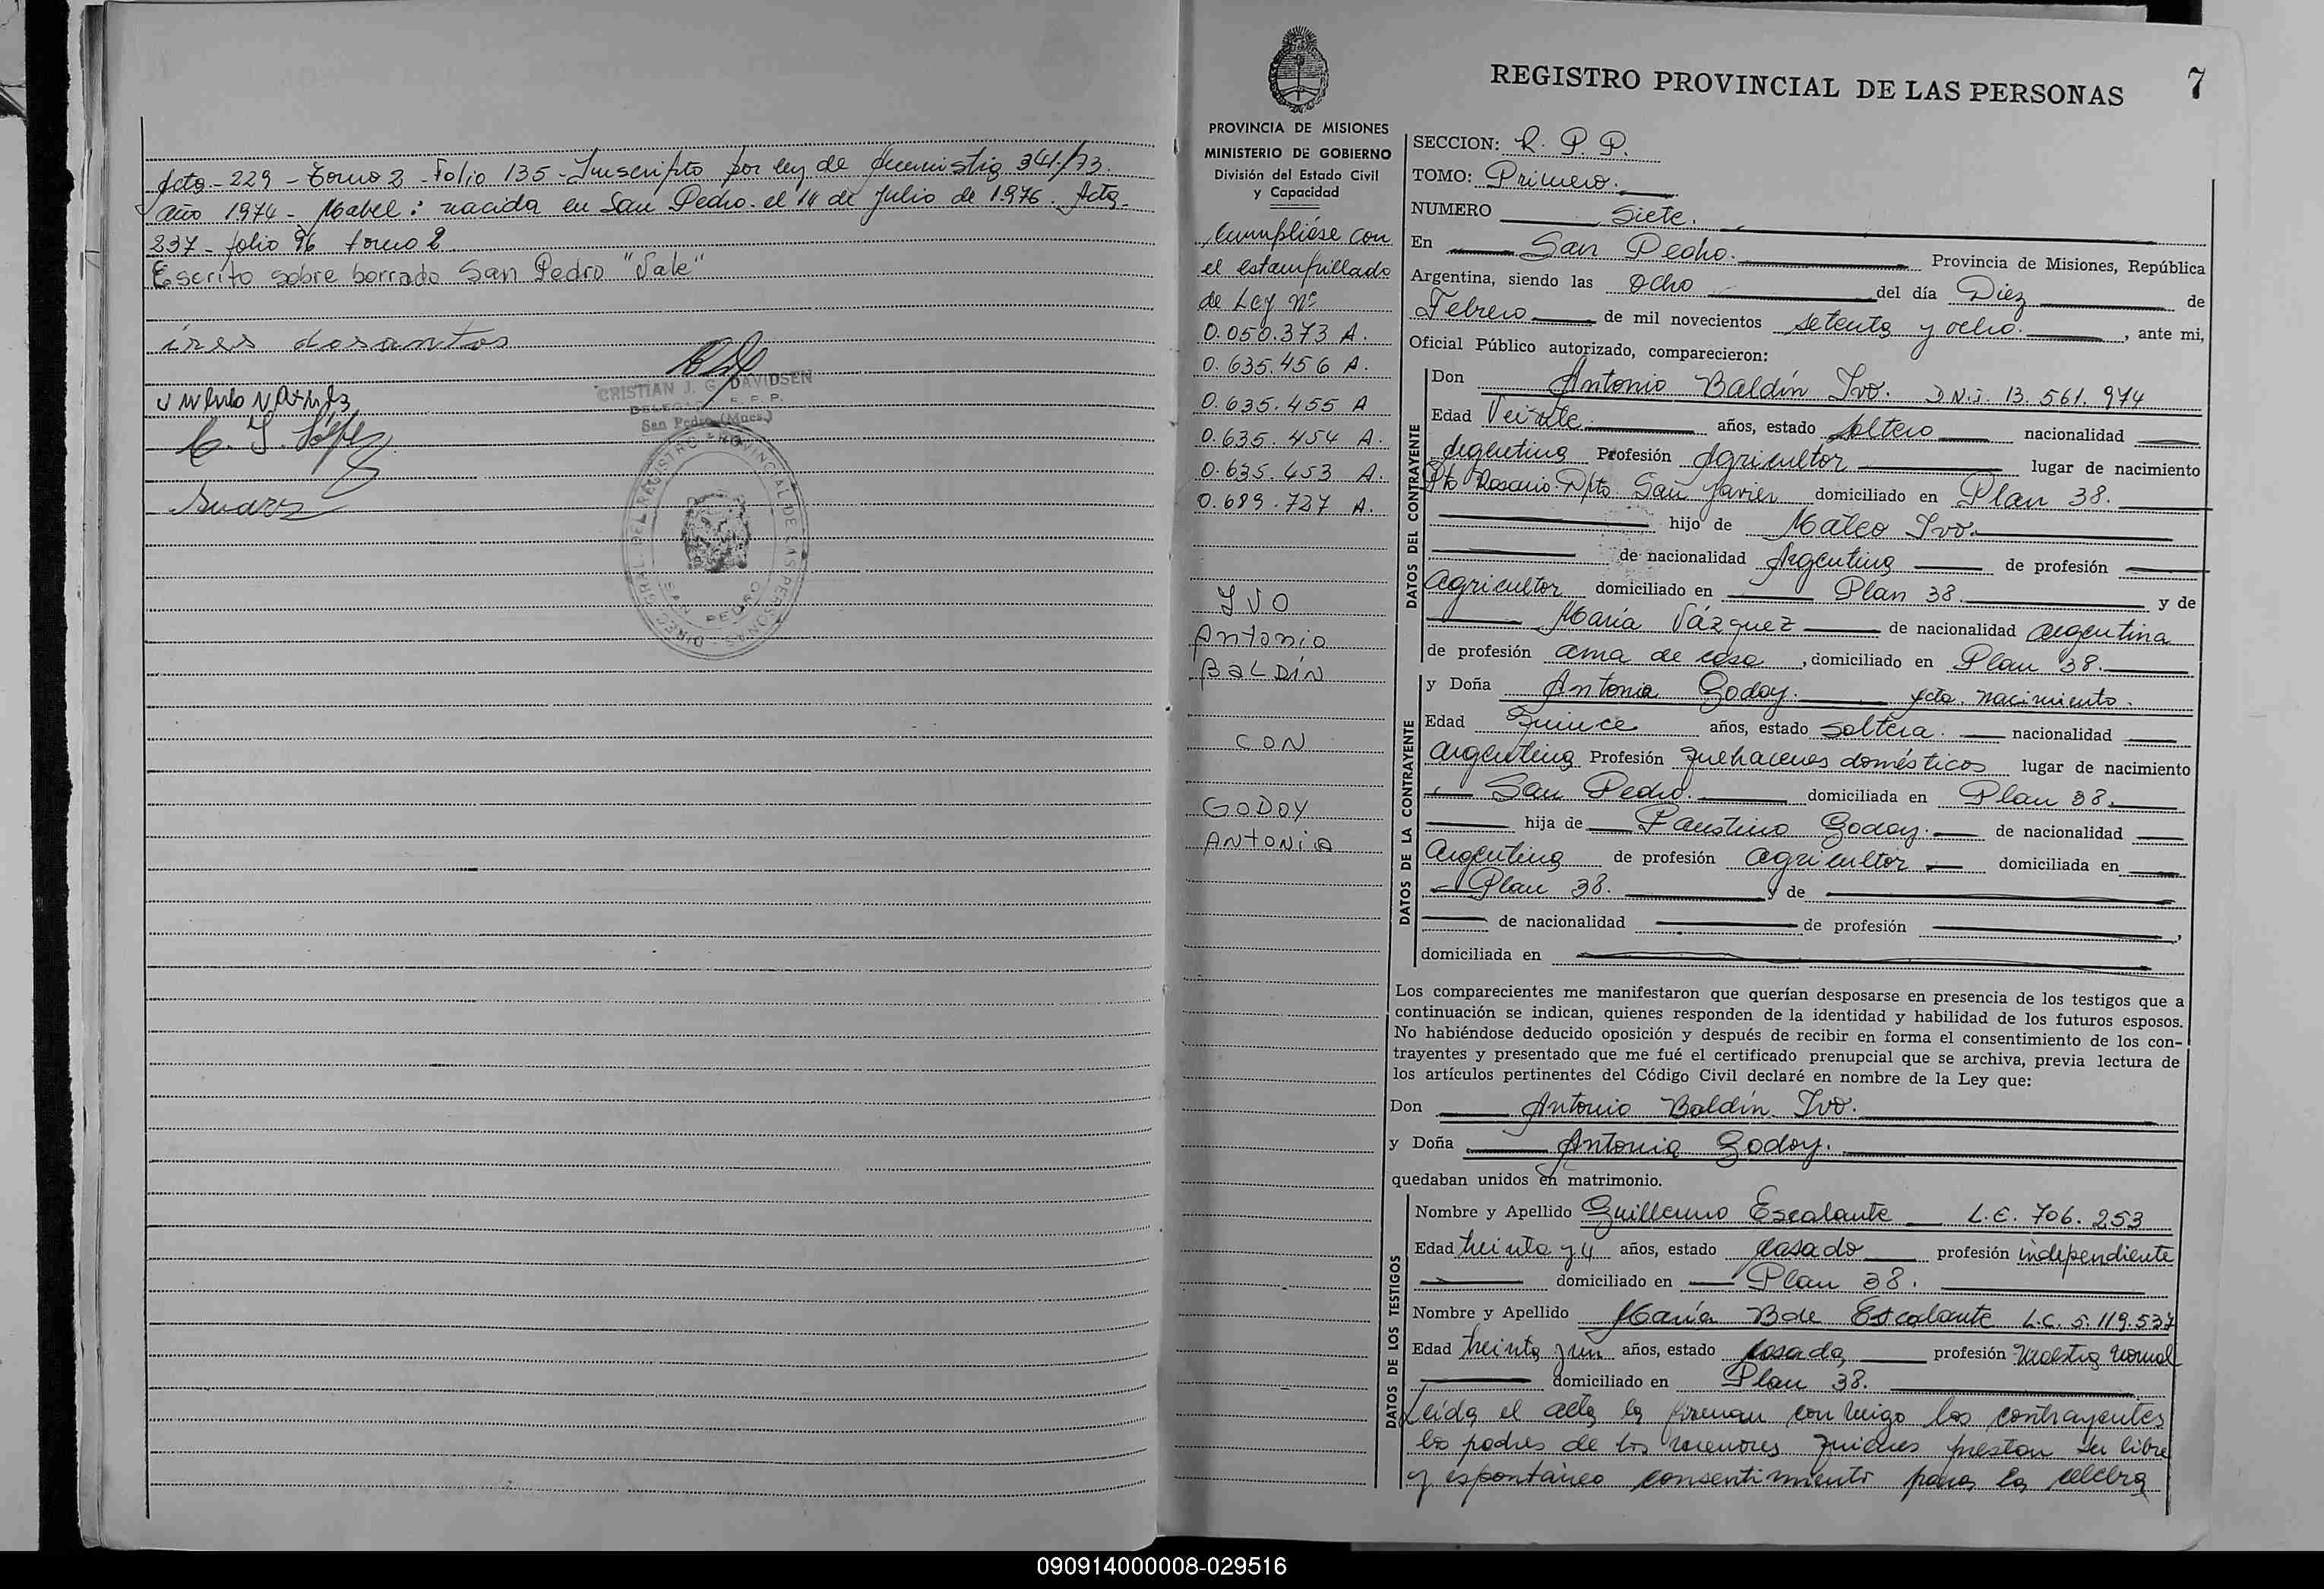 Acta - 229 - Tomo 2 - Folio 135 - Inscripto por ley de Amnistia 341/73.
año 1974 - Mabel: nacida en San Pedro - el 14 de Julio de 1.976. Acta
237 - folio 96 tomo 2
Escrito sobre borrado San Pedro "Vale"
ires dosantos
CRISTIAN J. G. DAVIDSEN
DELEGADO R. P. P.
San Pedro (Mnes.)
C. S. López
Suarez
DIREC. GRAL. DEL REGISTRO PROVINCIAL DE LAS PERSONAS
SAN PEDRO
PROVINCIA DE MISIONES
MINISTERIO DE GOBIERNO
División del Estado Civil
y Capacidad
Cumpliose con
el estampillado
de Ley Nº
0.050.373 A.
0.635.456 A.
0.635.455 A
0.635.454 A.
0.635.453 A.
0.689.727 A.
IVO
Antonio
BALDÍN
CON
GODOY
ANTONIA
REGISTRO PROVINCIAL DE LAS PERSONAS 7
SECCION: R. P. P.
TOMO: Primero.
NUMERO Siete.
En San Pedro. Provincia de Misiones, República
Argentina, siendo las Ocho del día Diez de
Febrero de mil novecientos setenta y ocho. , ante mi,
Oficial Público autorizado, comparecieron:
DATOS DEL CONTRAYENTE
Don Antonio Baldín Ivo. D.N.I. 13.561.974
Edad Veinte años, estado soltero nacionalidad
Argentina Profesión Agricultor lugar de nacimiento
Pto Rosario Dpto. San Javier domiciliado en Plan 38.
hijo de Mateo Ivo.
de nacionalidad Argentina de profesión
agricultor domiciliado en Plan 38. y de
María Vázquez de nacionalidad argentina
de profesión ama de casa , domiciliado en Plan 38.
DATOS DE LA CONTRAYENTE
y Doña Antonia Godoy. Acta nacimiento.
Edad Quince años, estado soltera. nacionalidad
argentina Profesión quehaceres domésticos lugar de nacimiento
San Pedro. domiciliada en Plan 38.
hija de Faustino Godoy. de nacionalidad
Argentina de profesión agricultor domiciliada en
Plan 38. y de
de nacionalidad de profesión ,
domiciliada en
Los comparecientes me manifestaron que querían desposarse en presencia de los testigos que a
continuación se indican, quienes responden de la identidad y habilidad de los futuros esposos.
No habiéndose deducido oposición y después de recibir en forma el consentimiento de los con-
trayentes y presentado que me fué el certificado prenupcial que se archiva, previa lectura de
los artículos pertinentes del Código Civil declaré en nombre de la Ley que:
Don Antonio Baldín Ivo.
y Doña Antonia Godoy.
quedaban unidos en matrimonio.
DATOS DE LOS TESTIGOS
Nombre y Apellido Guillermo Escalante L.E. 706.253
Edad treinta y 4 años, estado casado profesión independiente
domiciliado en Plan 38.
Nombre y Apellido María B de Escalante L.C. 5.119.537
Edad treinta y un años, estado casada profesión Maestra Normal
domiciliado en Plan 38.
Leida el acta la firman conmigo los contrayentes
los padres de los menores quienes prestan su libre
y espontáneo consentimiento para la celebra
090914000008-029516